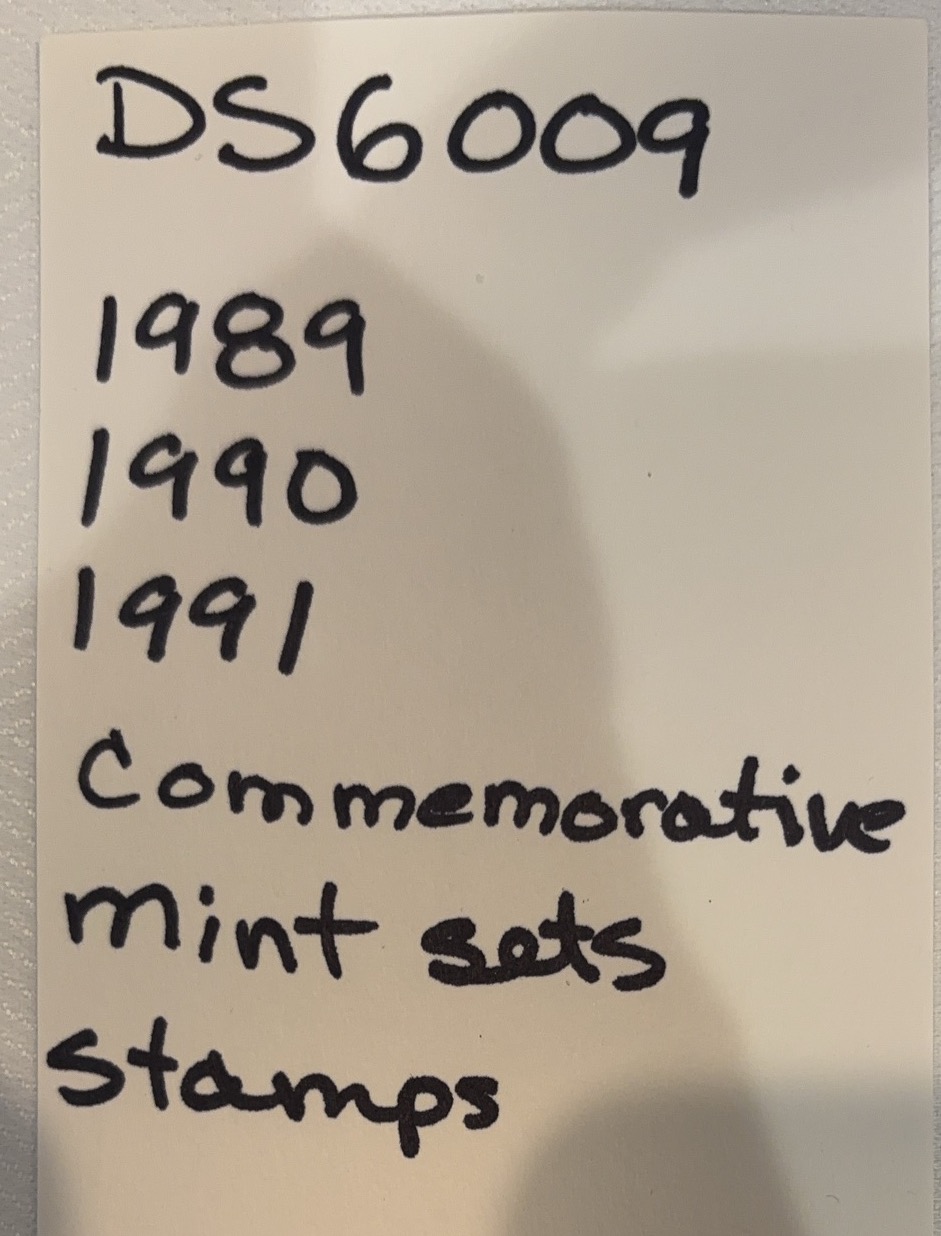 DS6009
1989
1990
1991
Commemorative
mint sets
stamps